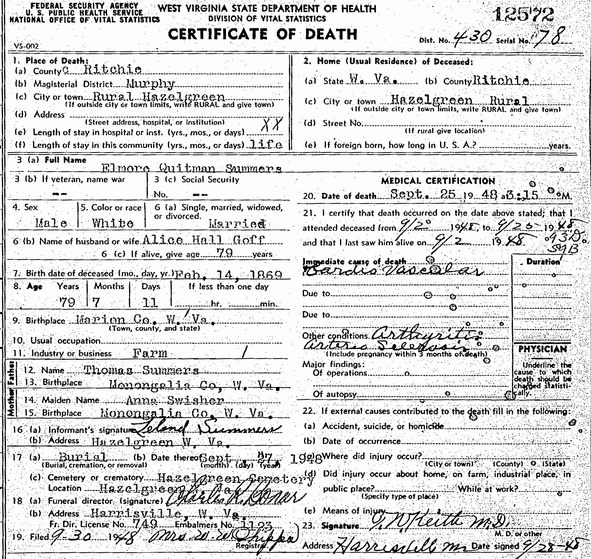 FEDERAL SECURITY AGENCY
U. S. PUBLIC HEALTH SERVICE
NATIONAL OFFICE OF VITAL STATISTICS
WEST VIRGINIA STATE DEPARTMENT OF HEALTH
DIVISION OF VITAL STATISTICS
CERTIFICATE OF DEATH
12572
VS-002
Dist. No. 430 Serial No. 78
1. Place of Death:
(a) County Ritchie
(b) Magisterial District Murphy
(c) City or town Rural Hazelgreen
(If outside city or town limits, write RURAL and give town)
(d) Address
(Street address, hospital, or institution)
(e) Length of stay in hospital or inst. (yrs., mos., or days) XX
(f) Length of stay in this community (yrs., mos., or days) life
2. Home (Usual Residence) of Deceased:
(a) State W. Va. (b) County Ritchie
(c) City or town Hazelgreen Rural
(If outside city or town limits, write RURAL and give town)
(d) Street No.
(If rural give location)
(e) If foreign born, how long in U. S. A.? years.
3 (a) Full Name
Elmore Quitman Summers
3 (b) If veteran, name war
--
3 (c) Social Security
No. --
4. Sex
Male
5. Color or race
White
6 (a) Single, married, widowed,
or divorced.
Married
6 (b) Name of husband or wife Alice Hall Goff
6 (c) If alive, give age 79 years
7. Birth date of deceased (mo., day, yr.) Feb. 14, 1869
8. Age Years Months Days If less than one day
79 7 11 hr. min.
9. Birthplace Marion Co, W. Va.
(Town, county, and state)
10. Usual occupation
11. Industry or business Farm
Father
12. Name Thomas Summers
13. Birthplace Monongalia Co, W. Va.
Mother
14. Maiden Name Anna Swisher
15. Birthplace Monongalia Co, W. Va.
16 (a) Informant's signature Leland Summers
(b) Address Hazelgreen W. Va.
17 (a) Burial (b) Date thereof Sept. 27, 1948
(Burial, cremation, or removal) (month) (day) (year)
(c) Cemetery or crematory Hazelgreen Cemetery
Location Hazelgreen
18 (a) Funeral director (signature)
(b) Address Harrisville, W. Va.
Fr. Dir. License No. 749 Embalmers No. 1193
19. Filed 9-30 1948 Mrs W. W.
Registrar
MEDICAL CERTIFICATION
20. Date of death Sept. 25 1948, 3:15 M.
21. I certify that death occurred on the date above stated; that I
attended deceased from 9/20 1948 to 9/25 1948
and that I last saw him alive on 9/2 1948
93D
Immediate cause of death
Cardio Vascular
Duration
Due to
Due to
Other conditions Arthyritis
Arterio Sclerosis
(Include pregnancy within 3 months of death)
Major findings:
Of operations
Of autopsy
PHYSICIAN
Underline
the cause to
which death
should be
charged
statisti-
cally.
22. If external causes contributed to the death fill in the following:
(a) Accident, suicide, or homicide
(b) Date of occurrence
(c) Where did injury occur?
(City or town) (County) (State)
(d) Did injury occur about home, on farm, industrial place, in
public place? While at work?
(Specify type of place)
(e) Means of injury
23. Signature Keith M.D.
M. D. or other
Address Harrisville Date signed 9/28-48